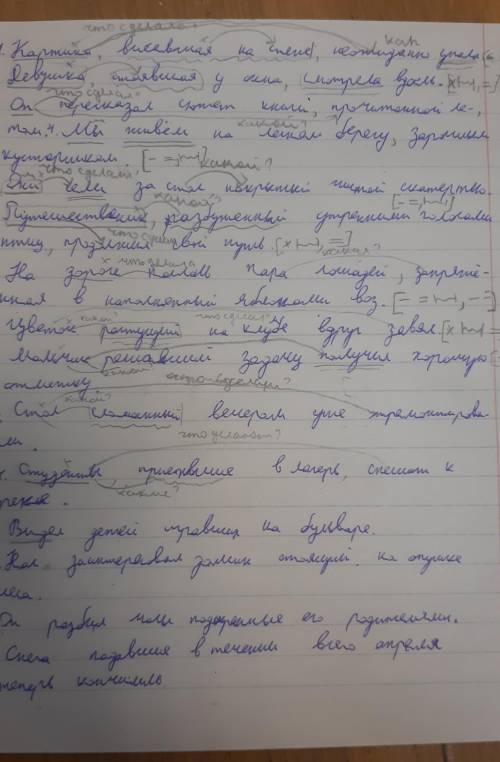 что сделала?
как
1. Картина, висевшая на стене, неожиданно упала
Девушка, стоявшая у окна, смотрела вдаль.
что сделал?
Он пересказал сюжет книги, прочитанной ле-
том. 4. Мы живём на левом берегу, заросшем
какой?
кустарником. какой?
что сделали?
Они сели за стол покрытый чистой скатертью.
какой?
Путешественник, разбуженный утренними голосами
птиц, продолжил свой путь.
что сделал
какая?
что делала
На дороге стояла пара лошадей, запряжё-
нная в наполненный яблоками воз.
какой? что сделал?
Цветок растущий на клубе вдруг завял
Мальчик решавший задачу получил хорошую
отметку
какой?
Стол сломанный вечером уже отремонтирова-
ли.
что делают?
Студенты приехавшие в лагерь, спешат к
какие?
реке.
Видел детей игравших на бульваре.
Нас заинтересовал домик стоящий на опушке
леса.
Он разбил часы подаренные его родителями.
Снега падавшие в течении всего апреля
теперь кончились